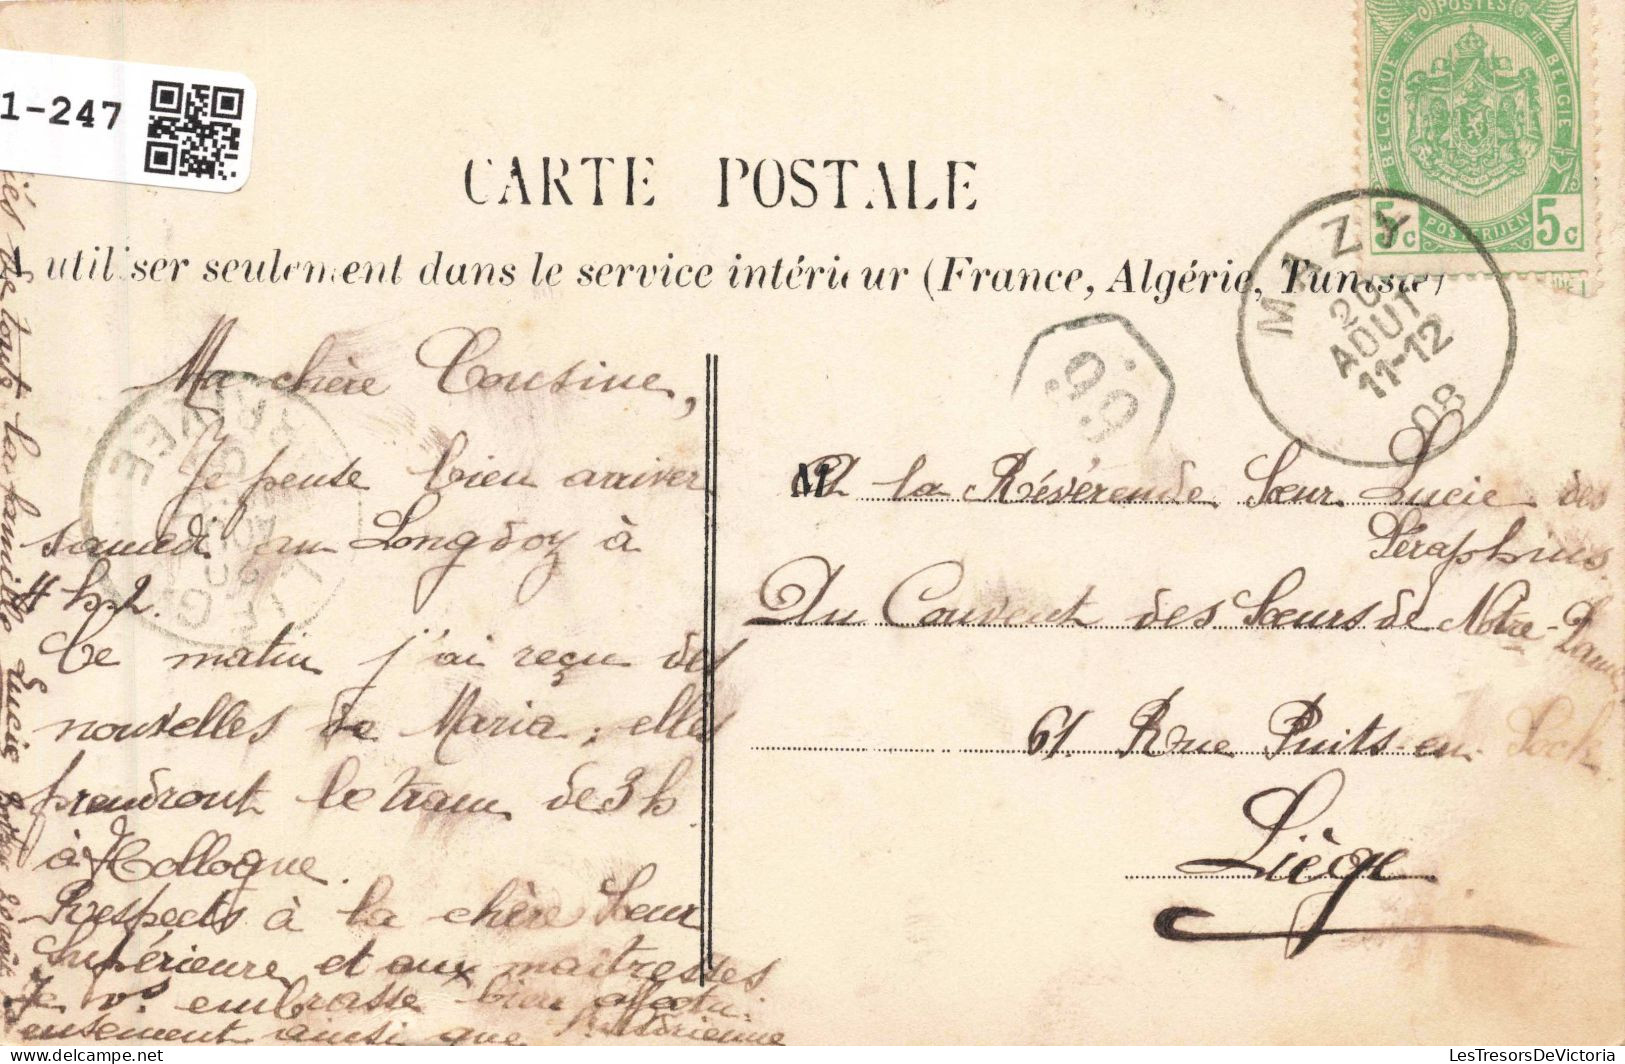 1-247
CARTE POSTALE
A utiliser seulement dans le service intérieur (France, Algérie, Tunisie)
POSTES
BELGIQUE BELGIE
5c POSTERIJEN 5c
MAZY
20
AOUT
11-12
08
99
Ma chère Cousine,
Je pense bien arriver
samedi au Longdoz à
4 h 1/2.
Ce matin j'ai reçu des
nouvelles de Maria; elles
prendront le tram de 3 h
à Hollogne.
Respects à la chère Sœur
Supérieure et aux maîtresses
Je vs embrasse bien affectu-
eusement ainsi que Victorienne
de toute la famille Lucie
M A la Révérende Sœur Lucie des
Séraphins
Du Couvent des Sœurs de Notre-Dame
61. Rue Puits-en-Sock.
Liège
delcampe.net
LesTresorsDeVictoria